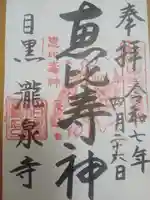 奉拝
令和七年
四月二十六日
恵比寿神
目黒 瀧泉寺